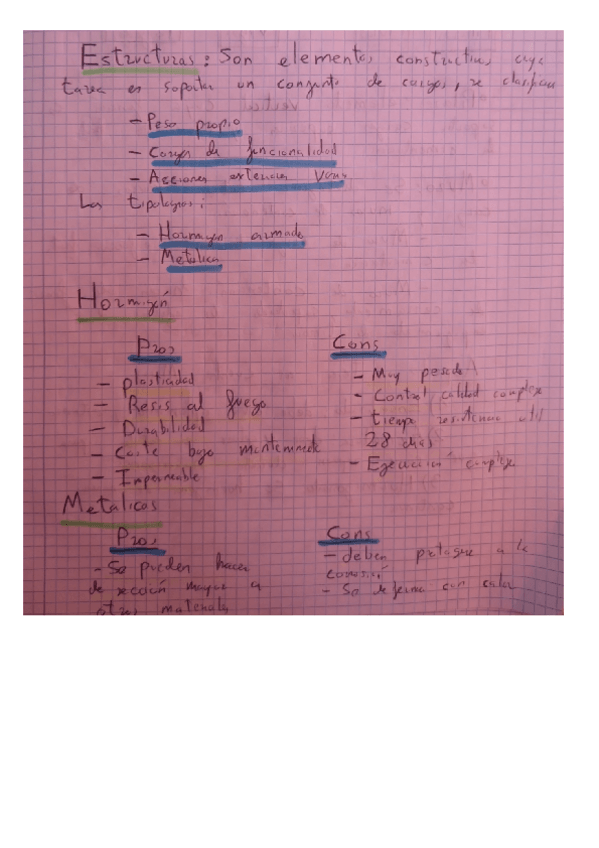 Estructuras: Son elementos constructivos cuya
tarea es soportar un conjunto de cargas, se clasifican
- Peso propio
- Cargas de funcionalidad
- Acciones externas
Las tipologias:
- Hormigon armado
- Metalica
Hormigón
Pros
Cons
- plasticidad
- Resis al fuego
- Durabilidad
- Coste bajo
- Impermeable
- Muy pesado
- Control calidad complejo
- tiempo resistencia util
28 dias
- Ejecución compleja
Metalicos
Pros
- Se pueden hacer
de sección a
otros materiales
Cons
- deben a la
corrosió
- Se deforma con calor